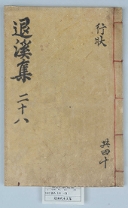 退溪集 二十八
行狀
共四十